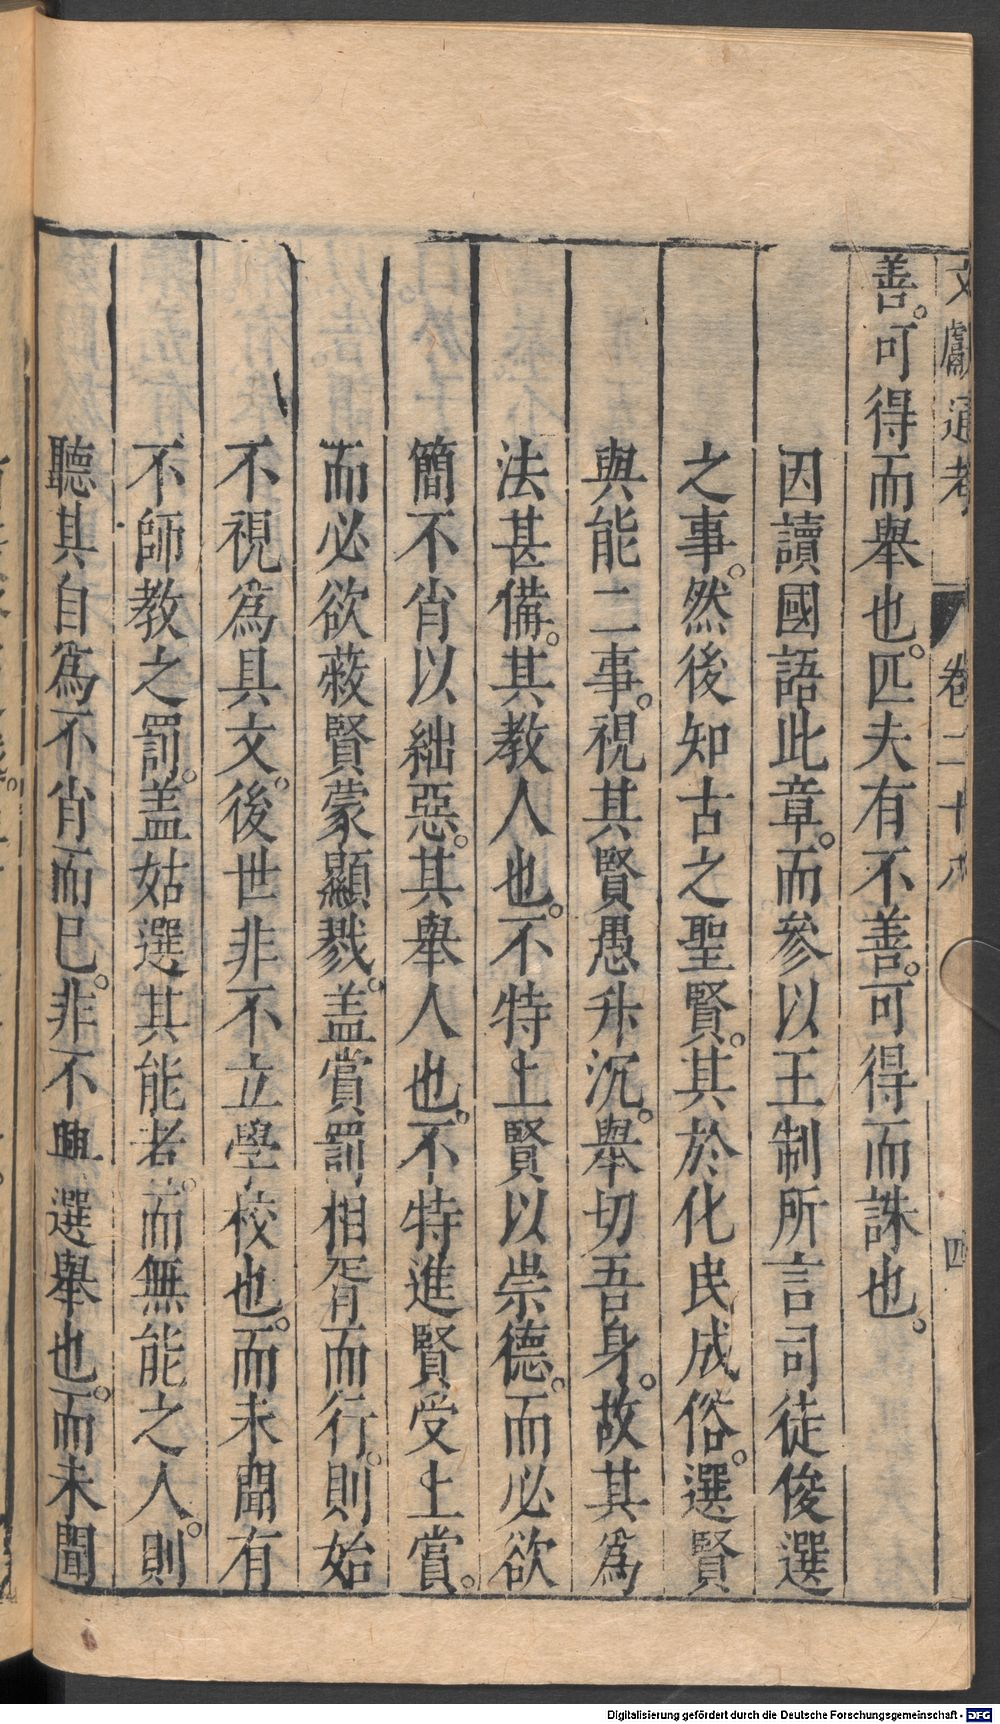 文獻通考 卷二十八 四
善。可得而舉也。匹夫有不善。可得而誅也。
因讀國語此章。而參以王制所言司徒俊選
之事。然後知古之聖賢。其於化民成俗。選賢
與能二事。視其賢愚升沉。舉切吾身。故其爲
法甚備。其教人也。不特上賢以崇德。而必欲
簡不肖以絀惡。其舉人也。不特進賢受上賞。
而必欲蔽賢蒙顯戮。盖賞罰相胥而行。則始
不視爲具文。後世非不立學校也。而未聞有
不師教之罰。盖姑選其能者。而無能之人。則
聽其自爲不肖而已。非不興選舉也。而未聞
Digitalisierung gefördert durch die Deutsche Forschungsgemeinschaft - DFG